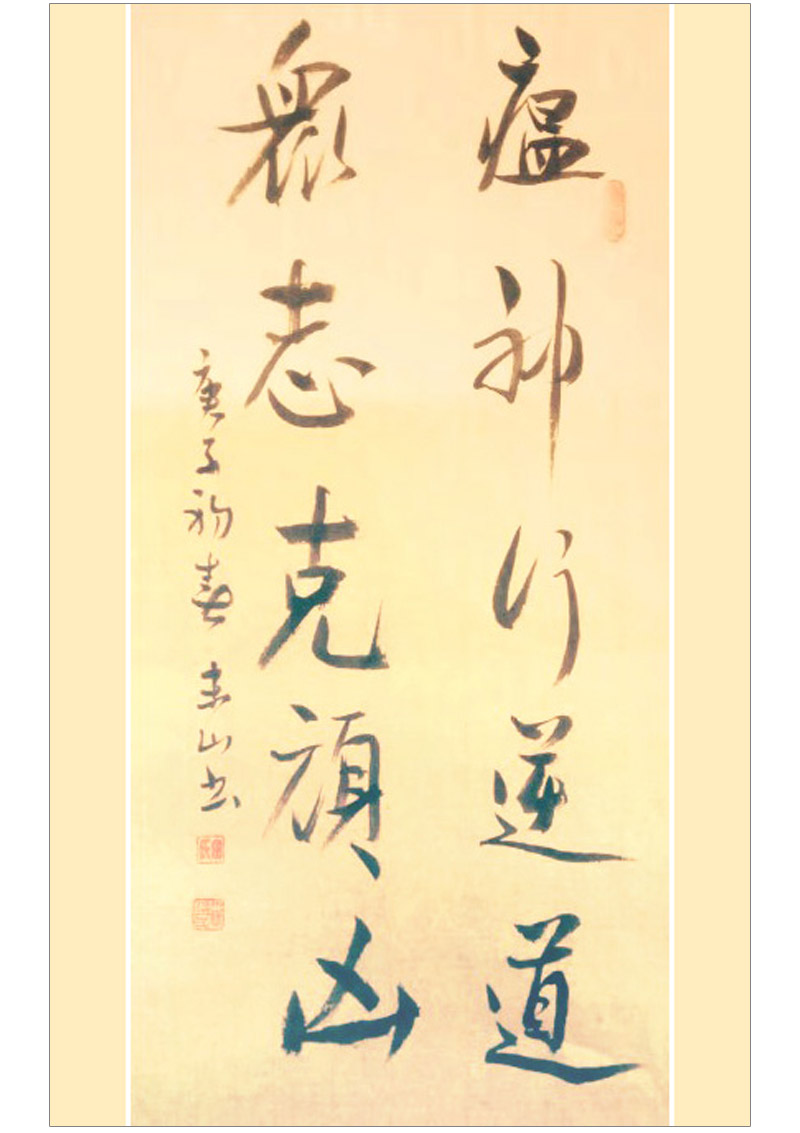 瘟神行逆道
眾志克頑凶
庚子初春 未山书